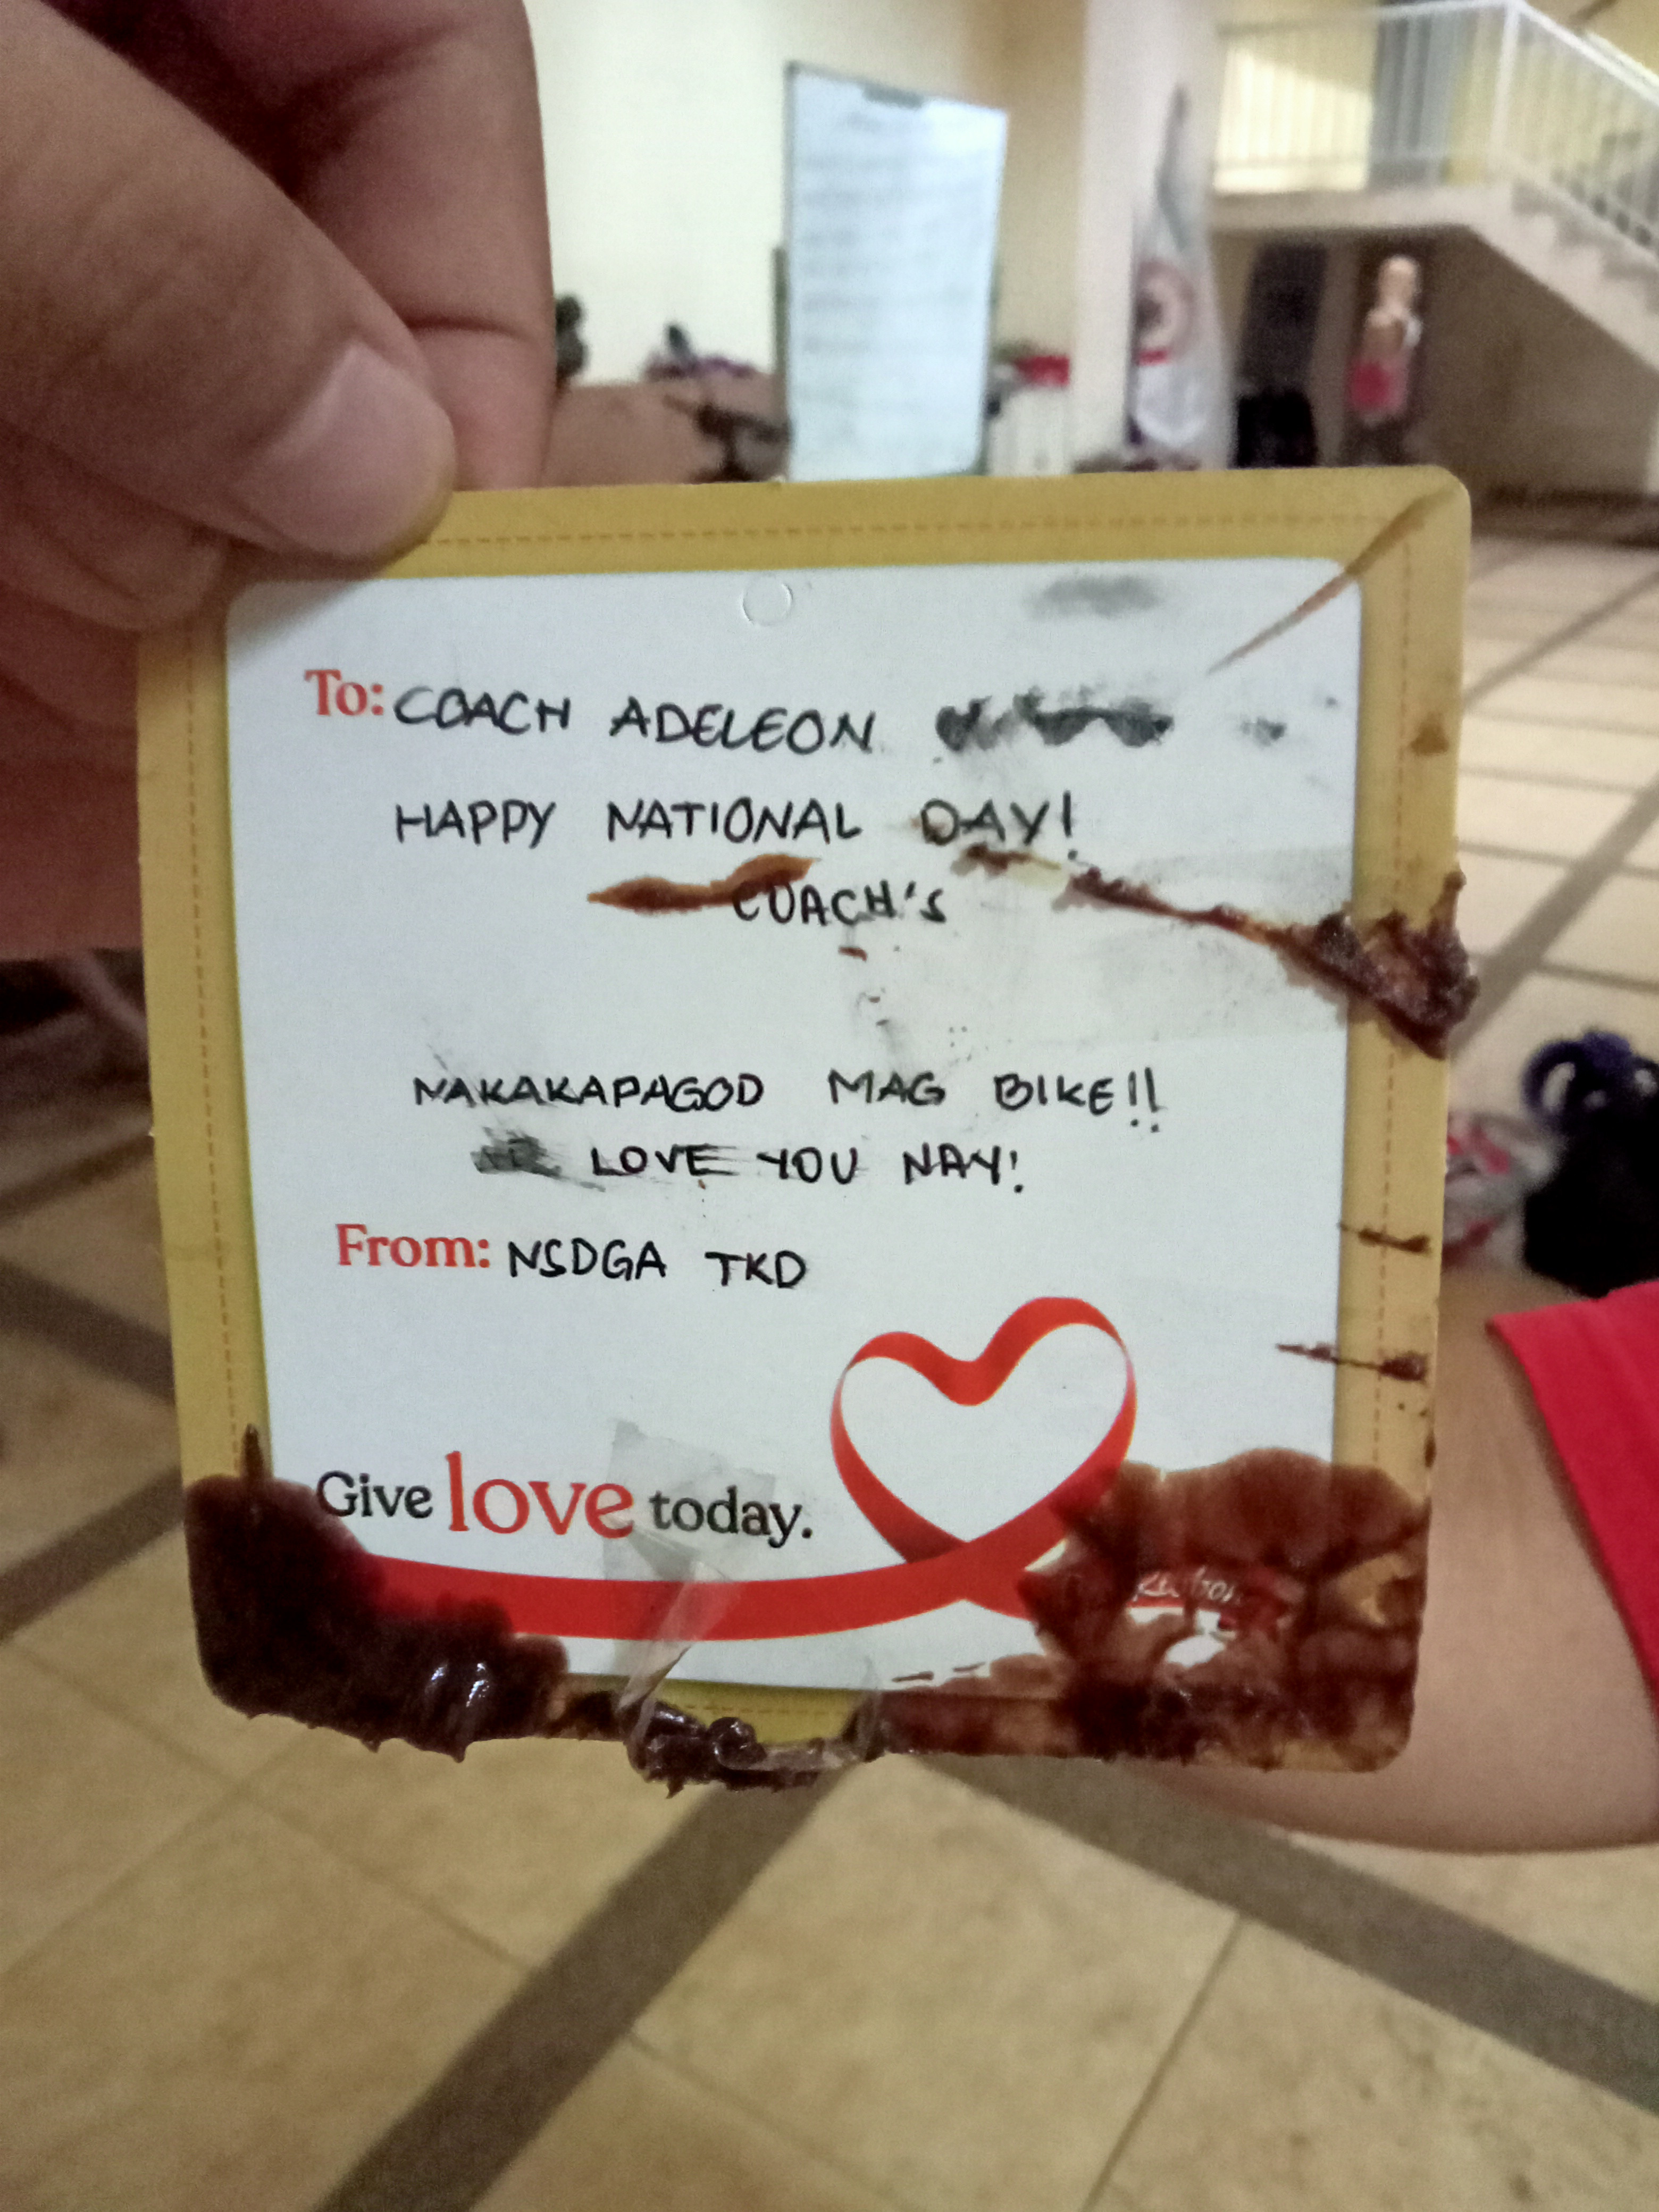 To: COACH ADELEON
HAPPY NATIONAL DAY!
COACH'S
NAKAKAPAGOD MAG BIKE!!
LOVE YOU NAY!
From: NSDGA TKD
Give love today.